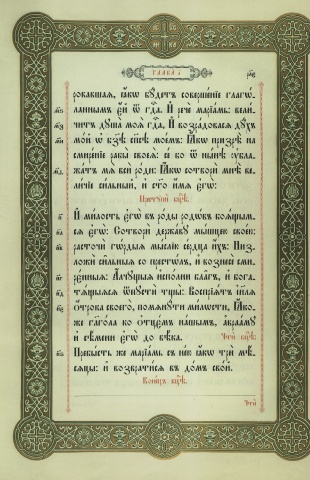 ГЛАВА а҃
ровавшаѧ, ꙗ҆́кѡ бꙋ́детъ соверше́нїе глаго́-
ланнымъ є҆́й ѿ гдⷭ҇а. И҆ речѐ марїа́мь: вели́-
читъ дꙋша̀ моѧ̀ гдⷭ҇а, И҆ возра́довасѧ дꙋ́хъ
мо́й ѡ҆ бз҃ѣ спⷭ҇ѣ мое́мъ: Ꙗ҆́кѡ призрѣ̀ на
смире́нїе рабы̀ своеѧ̀: се́ бо ѿ ны́нѣ ᲂу҆бла-
жа́тъ мѧ̀ всѝ ро́ди: Ꙗ҆́кѡ сотворѝ мнѣ̀ ве-
ли́чїе си́льный, и҆ ст҃о и҆́мѧ є҆гѡ̀:
Престꙋпѝ бцⷣѣ.
И҆ ми́лость є҆гѡ̀ въ ро́ды родѡ́въ боѧ́щым-
сѧ є҆гѡ̀: Сотворѝ держа́вꙋ мы́шцею свое́ю:
расточѝ гѡ́рдыѧ мы́слїю се́рдца и҆́хъ: Низ-
ложѝ си́льныѧ со прⷭ҇тѡ́лъ, и҆ вознесѐ сми-
ре́нныѧ: А҆́лчꙋщыѧ и҆спо́лни бла̑гъ, и҆ бога-
тѧ́щыѧсѧ ѿпꙋстѝ тщы̀: Воспрїѧ́тъ і҆и҃лѧ
ѻ҆́трока своего̀, помѧнꙋ́ти ми́лости, Ꙗ҆́ко-
же гл҃го́ла ко ѻ҆тцє́мъ на́шымъ, а҆враа́мꙋ
и҆ сѣ́мени є҆гѡ̀ до вѣ́ка. Чтѝ бцⷣѣ:
Пребы́сть же марїа́мь съ не́ю ꙗ҆́кѡ трѝ мѣ́-
сѧцы: и҆ возврати́сѧ въ до́мъ сво́й.
Коне́цъ бцⷣѣ.
Чтѝ